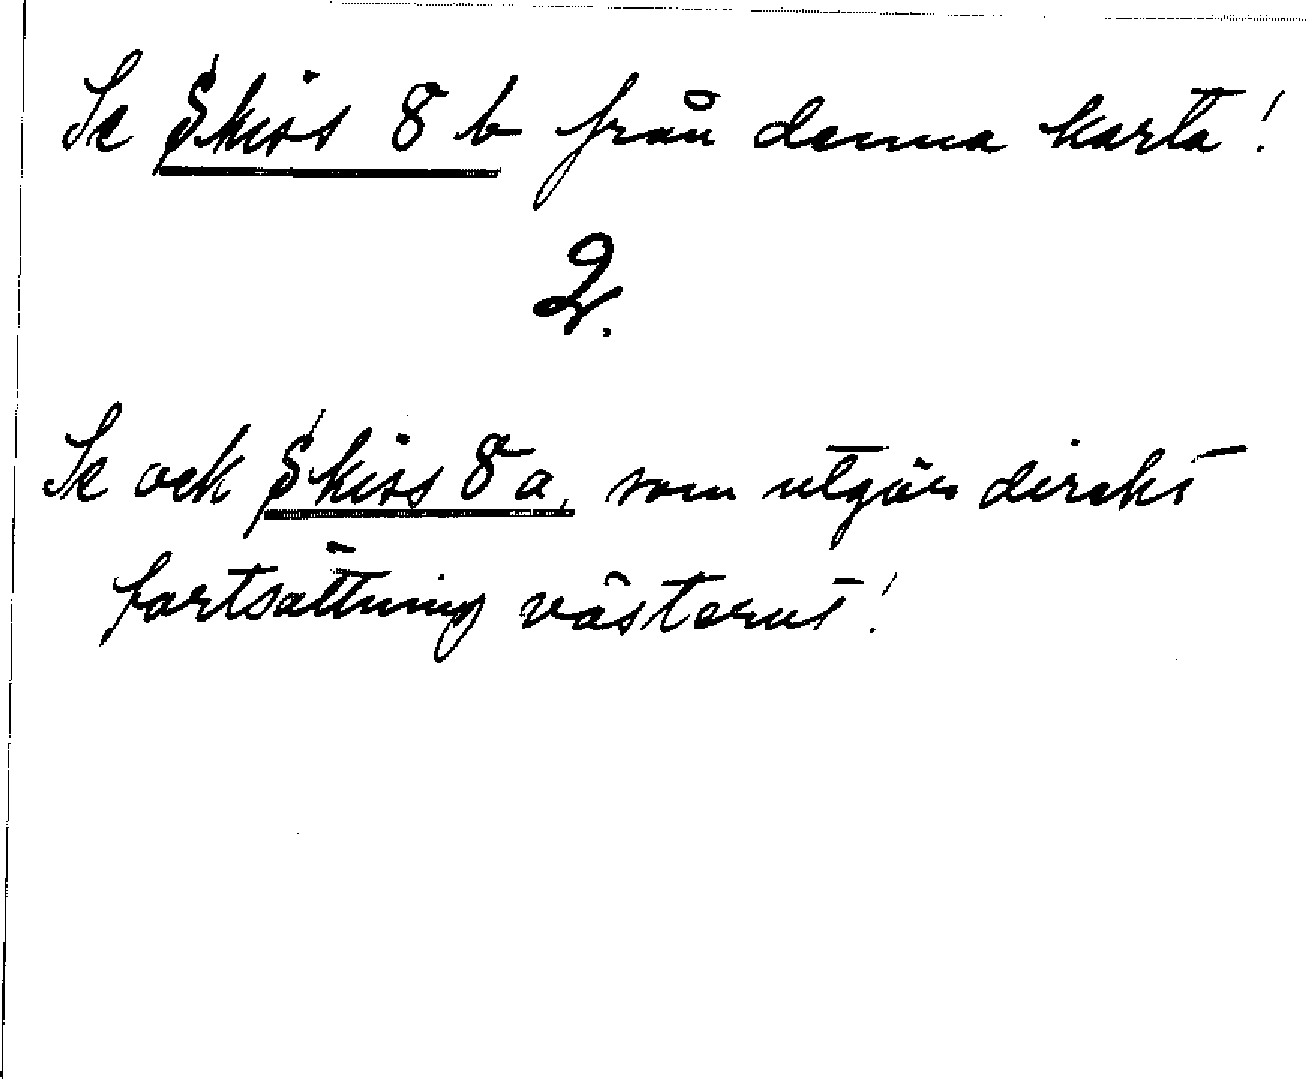 Se Skiss 8 b från denna karta!
2.
Se ock Skiss 8 a, som utgör direkt
fortsättning västerut!